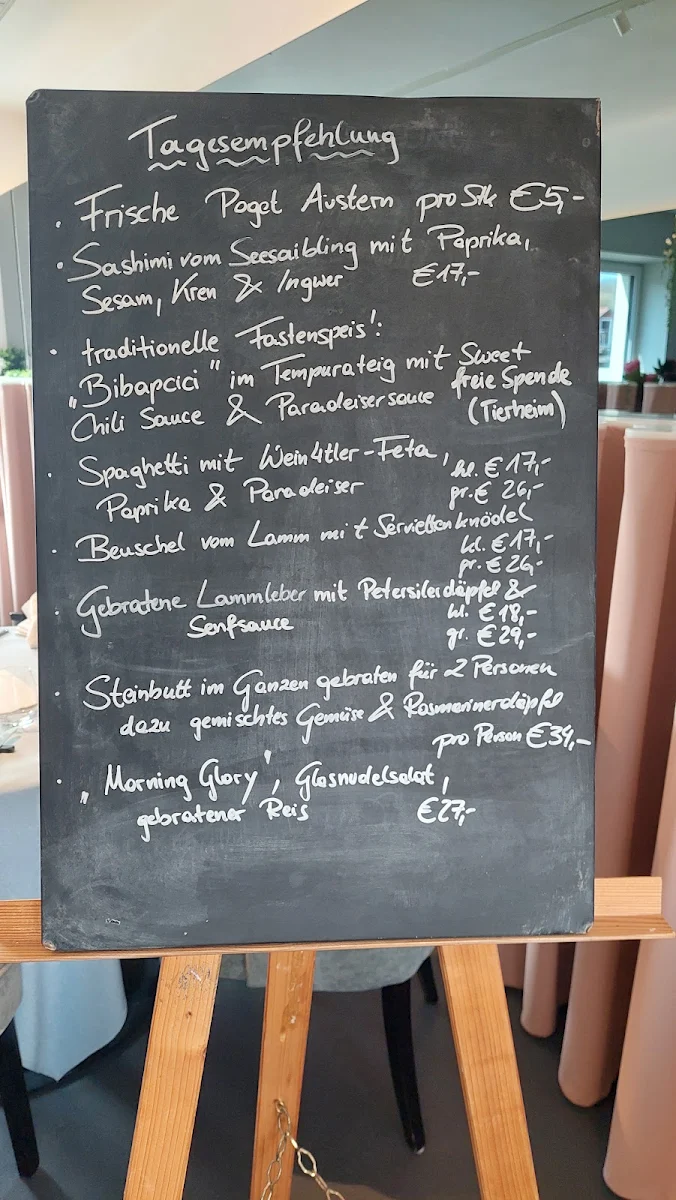 Tagesempfehlung
· Frische Poget Austern pro Stk €5,-
· Sashimi vom Seesaibling mit Paprika,
Sesam, Kren & Ingwer €17,-
· traditionelle Fastenspeis':
„Bibapcici" im Tempurateig mit Sweet
Chili Sauce & Paradeisersauce freie Spende
(Tierheim)
· Spaghetti mit Wein4tler-Feta,
Paprika & Paradeiser kl. €17,-
gr. € 26,-
· Beuschel vom Lamm mit Serviettenknödel
kl. €17,-
gr. € 26,-
· Gebratene Lammleber mit Petersilerdäpfel &
Senfsauce kl. €18,-
gr. €29,-
· Steinbutt im Ganzen gebraten für 2 Personen
dazu gemischtes Gemüse & Rosmarinerdäpfel
pro Person €39,-
· „Morning Glory", Glasnudelsalat,
gebratener Reis €27,-